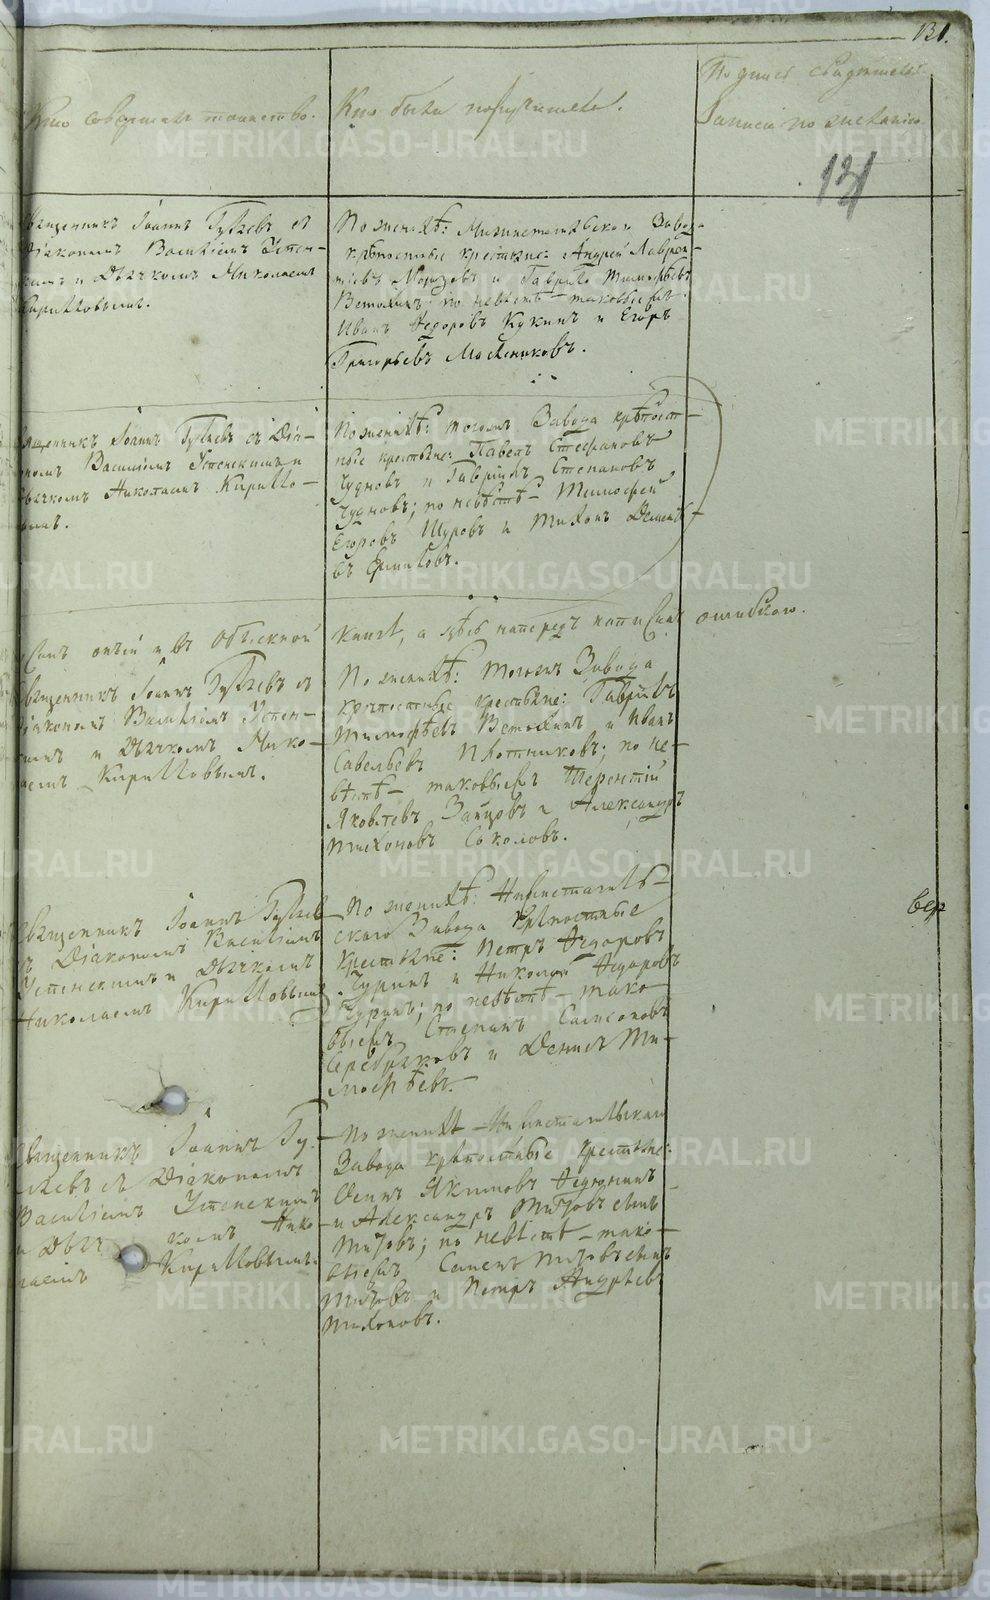 131.
Кто совершалъ таинство.
Кто были поручители.
Подпись свидѣтелей
записи по желанію
131
священникъ Іоаннъ Гуляевъ съ
Діакономъ Василіемъ Успен-
скимъ и Дьячкомъ Николаемъ
Кирилловымъ.
По женихѣ: Нижнетагильскаго Завода
крѣпостные крестьяне: Андрей Лаврен-
тьевъ и Гаврило Тимофѣевъ
Ветошкинъ по невѣстѣ таковыежъ
Иванъ Ѳедоровъ Кукинъ и Егоръ
Григорьевъ Мясниковъ.
священникъ Іоаннъ Гуляевъ съ Діа-
кономъ Василіемъ Успенскимъ и
Дьячкомъ Николаемъ Кирилло-
вымъ.
По женихѣ: тогожъ Завода крѣпост-
ные крестьяне: Павелъ Стефановъ
Чудновъ и Гавріилъ Степановъ
Чудновъ; по невѣстѣ Тимофей
Егоровъ Щуровъ и Тихонъ Дементь-
въ Ермиловъ.
въ Обыскной книгѣ, а здѣсь напередъ написанъ ошибкою.
священникъ Іоаннъ Гуляевъ съ
Діакономъ Василіемъ Успен-
скимъ и Дьячкомъ Нико-
лаемъ Кирилловымъ.
По женихѣ: тогожъ Завода
крѣпостные крестьяне: Гавріилъ
Тимофѣевъ Ветошкинъ и Иванъ
Савельевъ Плотниковъ; по не-
вѣстѣ таковыежъ Терентій
Яковлевъ Зайцовъ и Александръ
Тихоновъ Соколовъ.
священникъ Іоаннъ Гуляевъ
съ Діакономъ Василіемъ
Успенскимъ и Дьячкомъ
Николаемъ Кирилловымъ
По женихѣ: Нижнетагиль-
скаго Завода крѣпостные
крестьяне: Петръ Ѳедоровъ
Чуринъ и Николай Ѳедоровъ
Чуринъ; по невѣстѣ тако-
выежъ Степанъ
Серебряковъ и Денисъ Ти-
мофѣевъ.
вер
священникъ Іоаннъ Гу-
ляевъ съ Діакономъ
Василіемъ Успенскимъ
и Дьячкомъ Нико-
лаемъ Кирилловымъ.
По женихѣ Нижнетагильскаго
Завода крѣпостные крестьяне:
Осипъ Якимовъ
и Александръ Титовъ сынъ
Титовъ; по невѣстѣ тако-
выежъ Семенъ Титовъ сынъ
Титовъ и Петръ Андрѣевъ
Тихоновъ.
METRIKI.GASO-URAL.RU